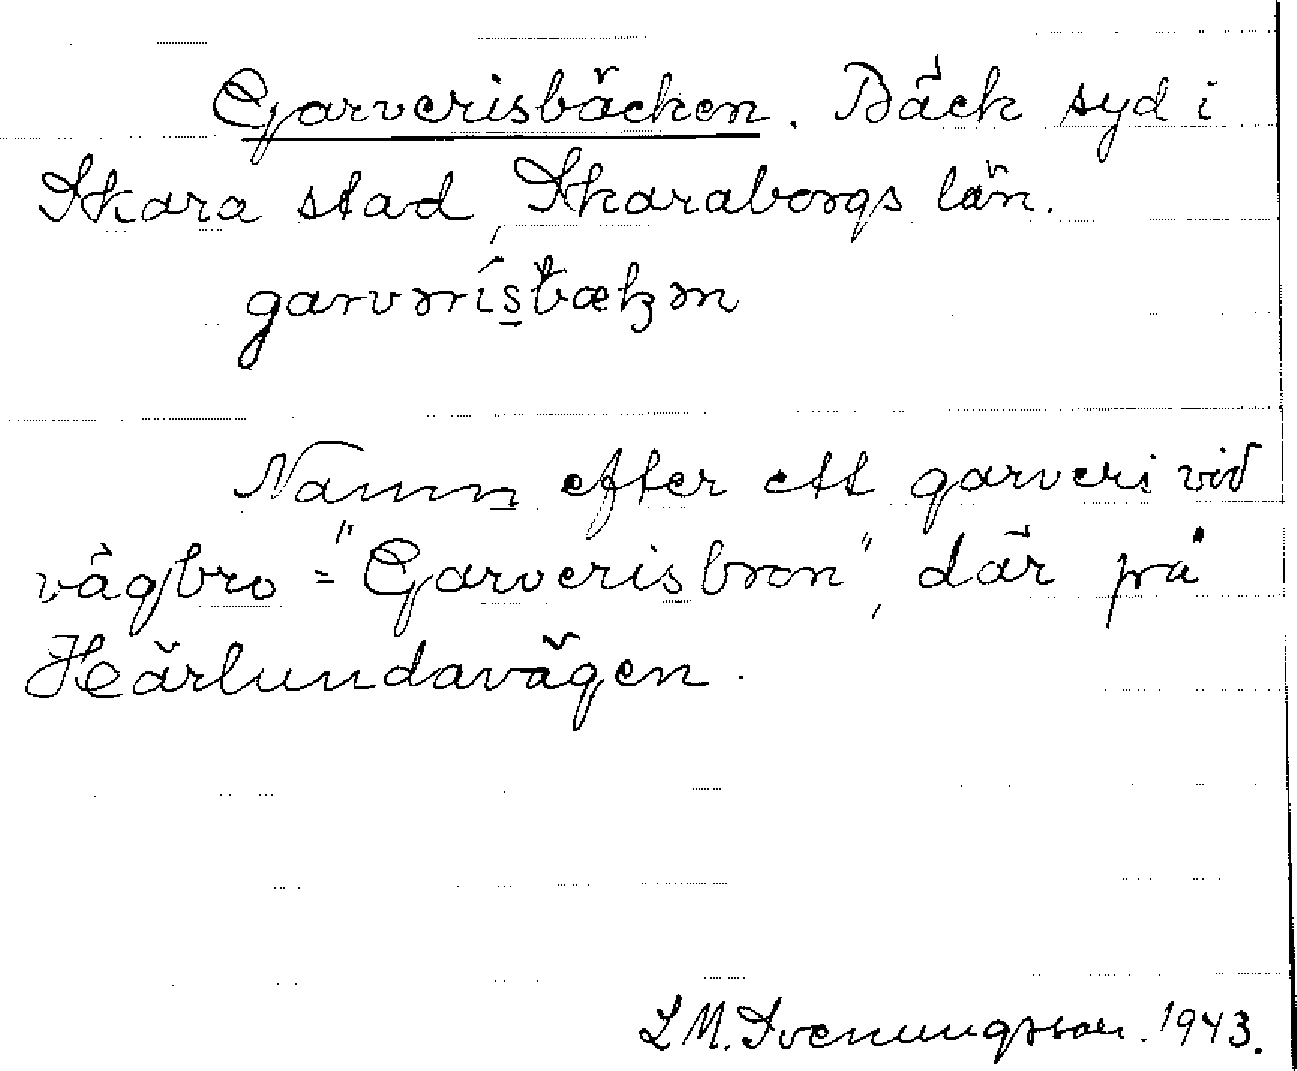 Garverisbäcken. Bäck syd i
Skara stad, Skaraborgs län.
Namn efter ett garveri vid
vägbro = "Garverisbron", där på
Härlundavägen.
L M. Svenungsson. 1943.